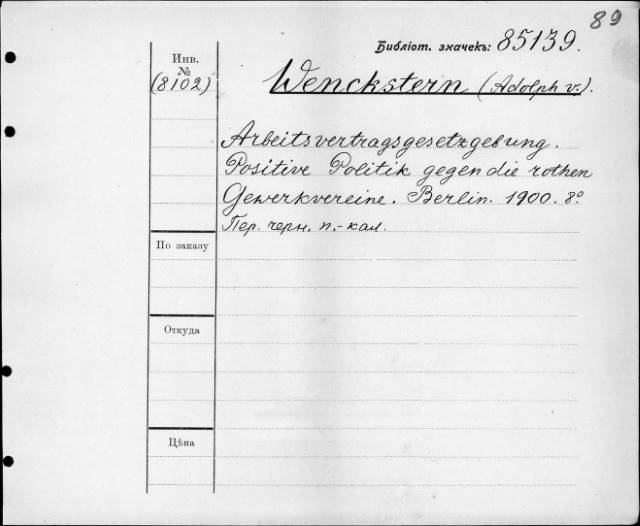 89
Библіот. значекъ: 85139.
Инв.
№
(8102)
Wenckstern (Adolph v.).
Arbeitsvertragsgesetzgebung.
Positive Politik gegen die rothen
Gewerkvereine. Berlin. 1900. 8º
Пер. черн. п.-кал.
По заказу
Откуда
Цѣна